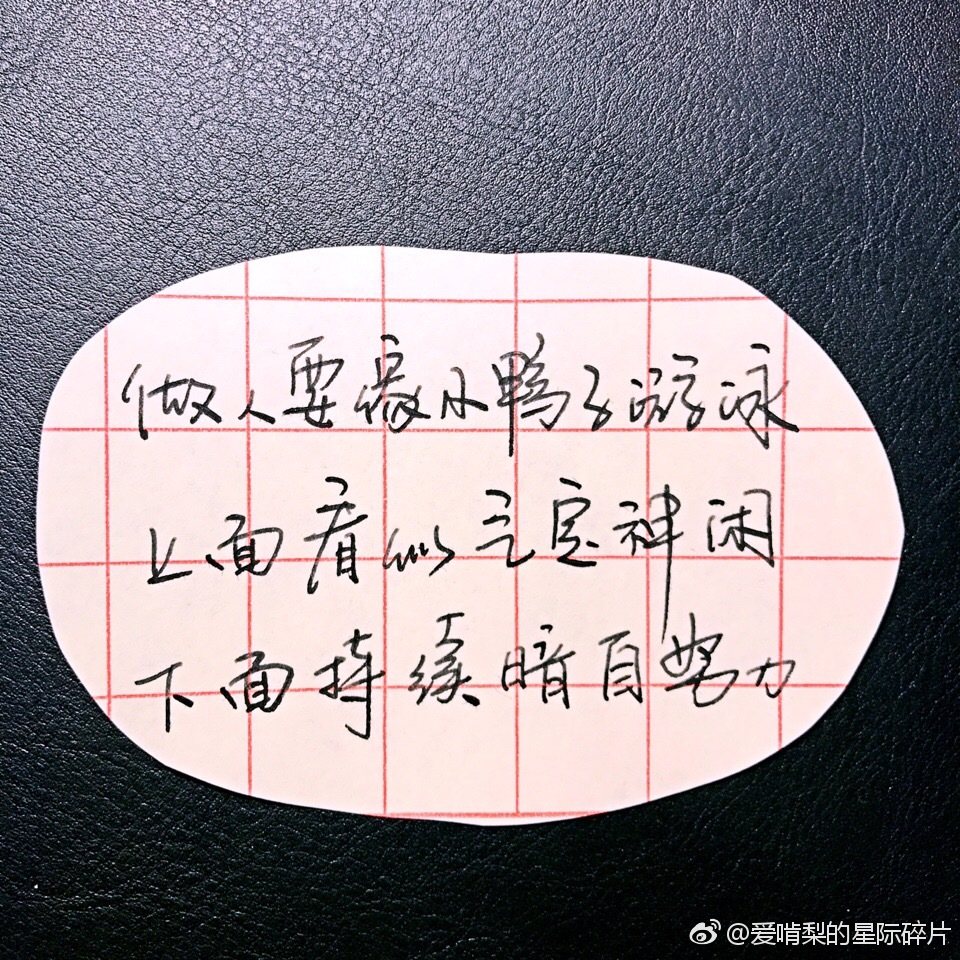 做人要像小鸭子游泳
上面看似气定神闲
下面持续暗自努力
@爱啃梨的星际碎片